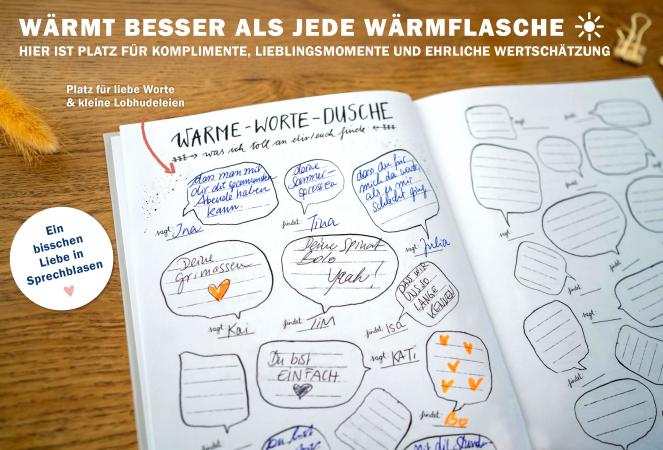 WÄRMT BESSER ALS JEDE WÄRMFLASCHE
HIER IST PLATZ FÜR KOMPLIMENTE, LIEBLINGSMOMENTE UND EHRLICHE WERTSCHÄTZUNG
Platz für liebe Worte
& kleine Lobhudeleien
WARME-WORTE-DUSCHE
was ich toll an dir/euch finde
dass man mit
dir die spannendsten
Abende haben
kann.
sagt Ina
deine
Sommer-
sprossen
findet Tina
dass du für
mich da warst,
als es mir
schlecht ging
sagt Julia
Ein
bisschen
Liebe in
Sprechblasen
Deine
Grimassen
sagt Kai
Deine Spinat
Bolo
Yeah!
findet TIM
DASS WIR
UNS SO
LANGE
KENNEN
findet Isa
Du bist
EINFACH
sagt KATI
findet Bo
Du bist
mit dir
sagt
sagt
findet
findet
findet